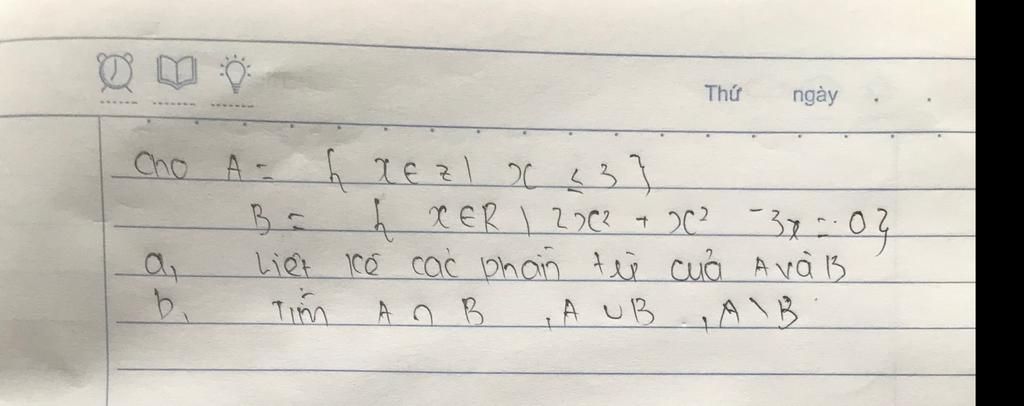 Thứ ngày . .
Cho A = { x ∈ z | x ≤ 3 }
B = { x ∈ R | 2x² + x² - 3x = 0 }
a, Liệt kê các phần tử của A và B
b, Tìm A ∩ B , A ∪ B , A \ B